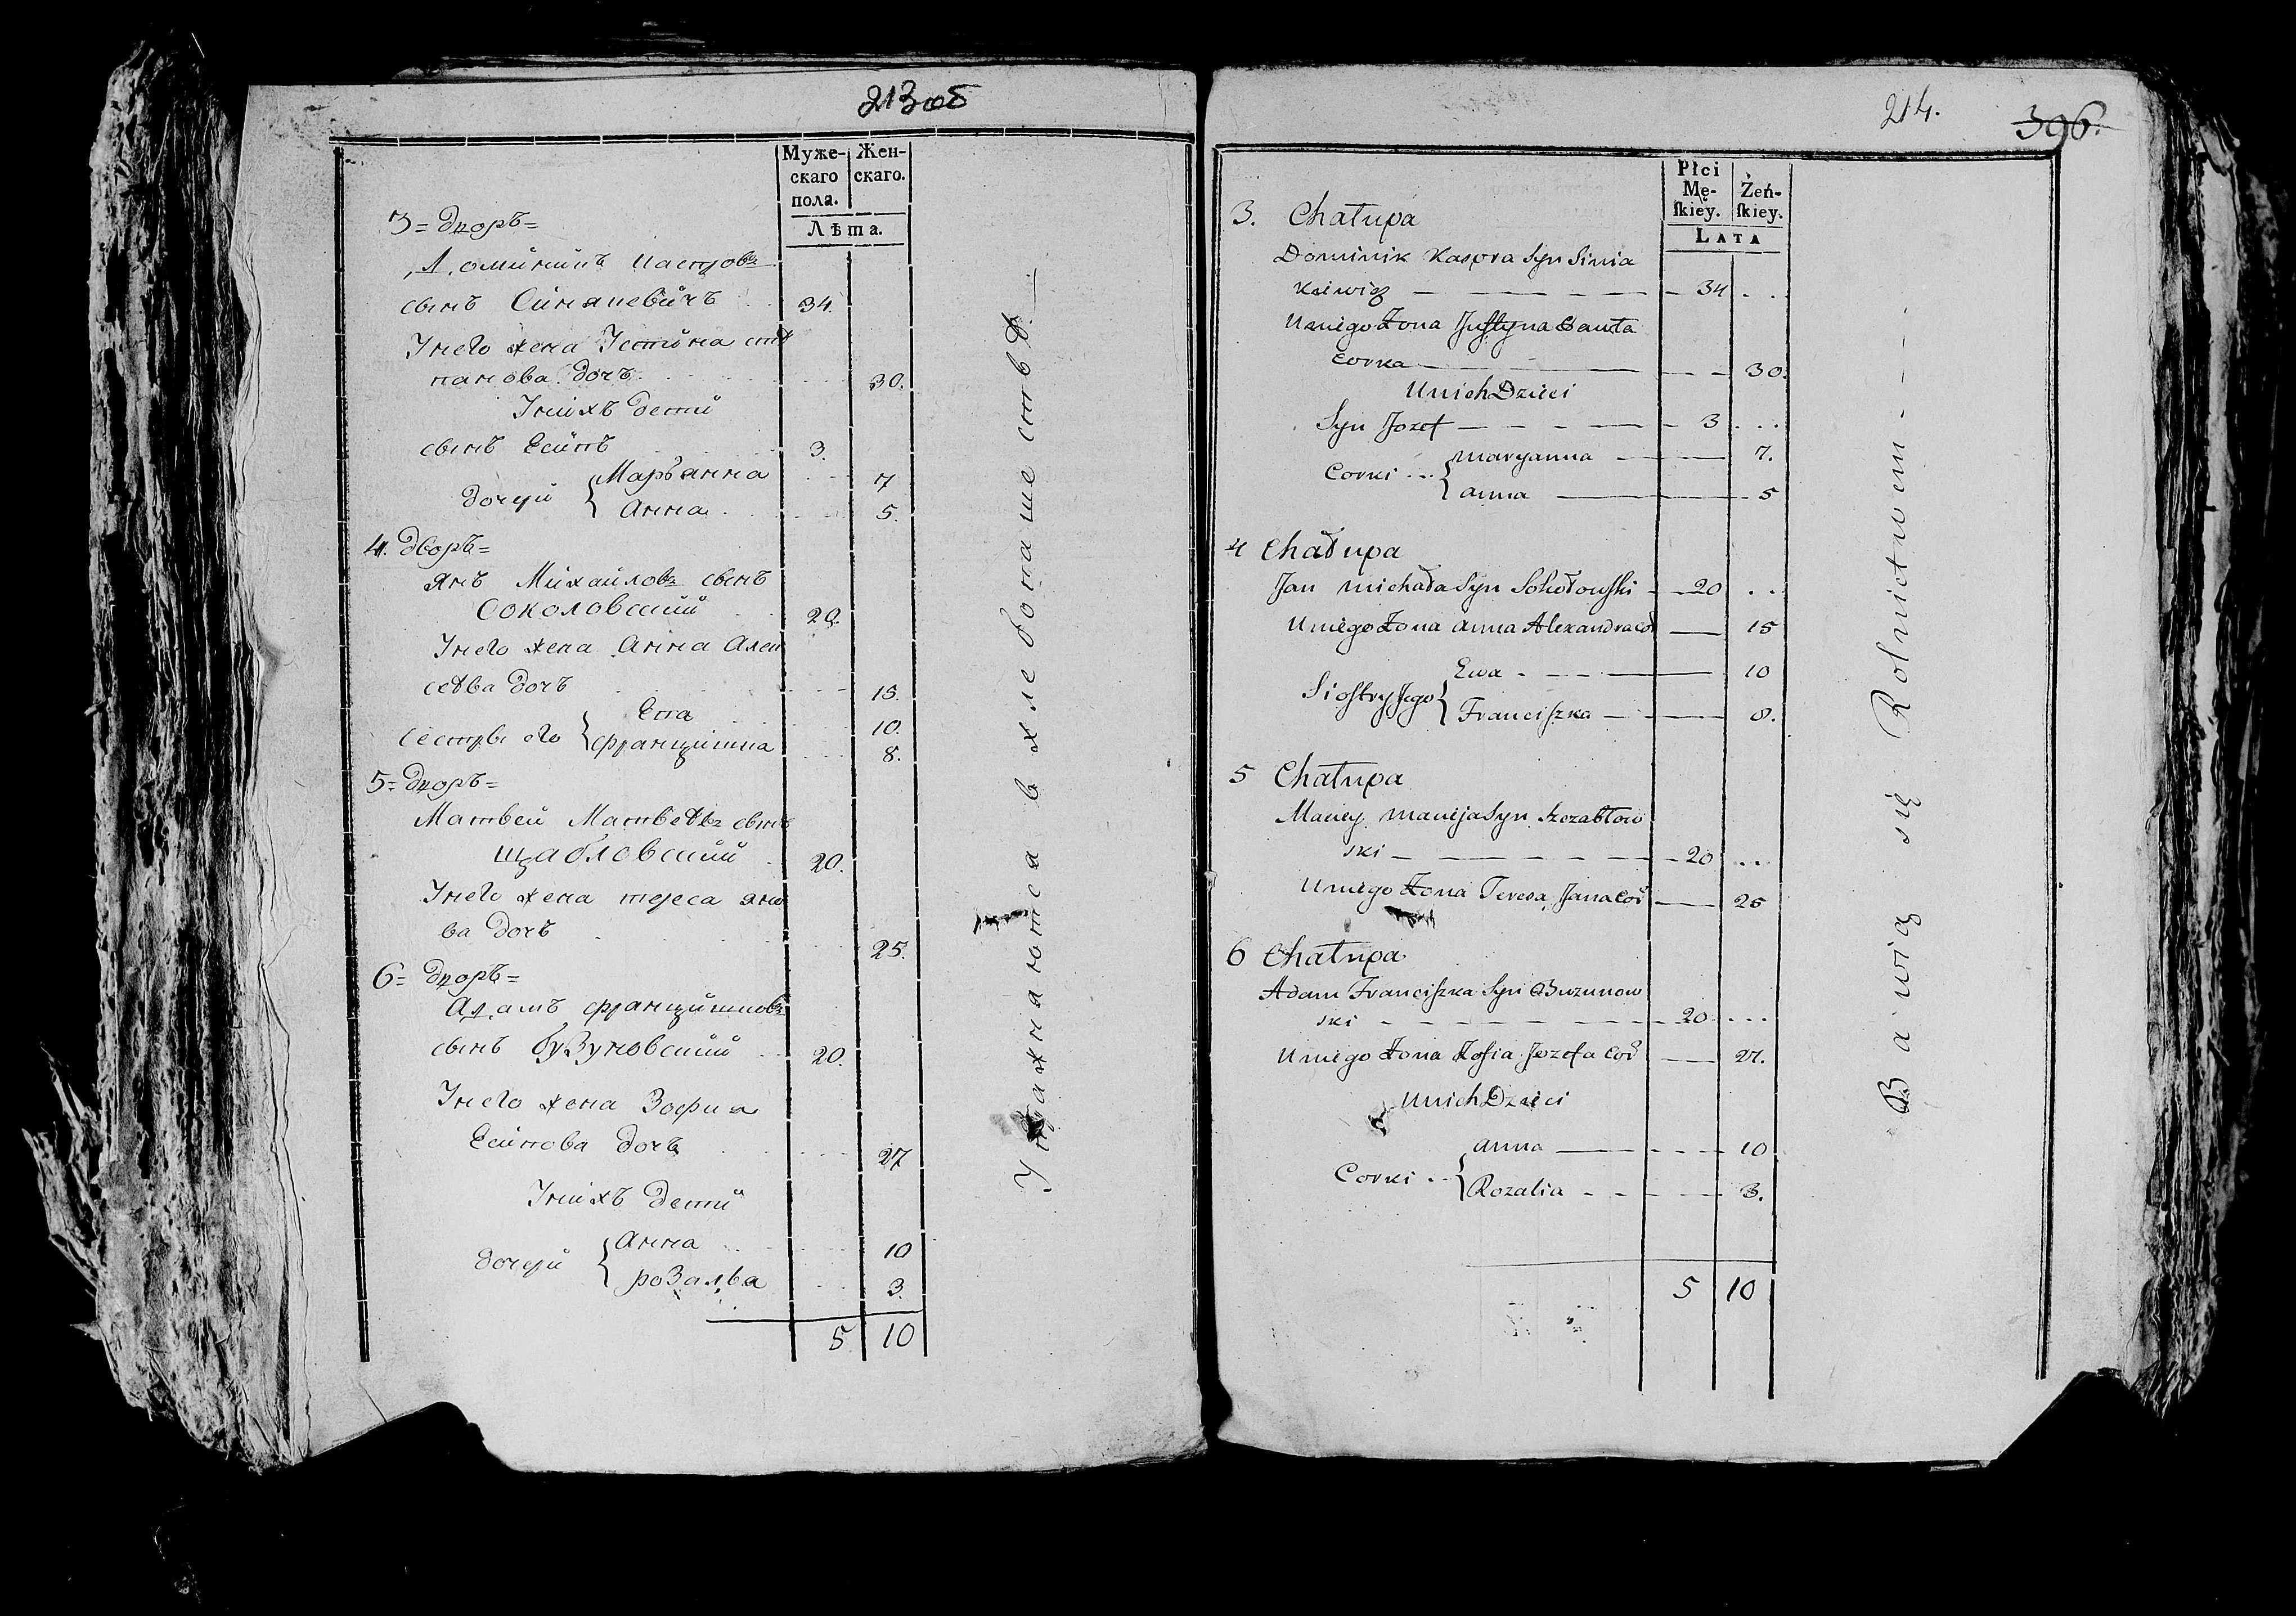 213 об
Муже- Жен-
скаго скаго.
пола.
Лѣта.
3= дворъ=
Доминикъ касперовъ
сынъ Симакевичъ 34.
Унего жена Устина сте
панова дочъ 30.
Унихъ дети
сынъ Есипъ 3.
дочери { Марьянна 7
Анна 5.
4. дворъ=
янъ Михайловъ сынъ
Соколовский 20.
Унего жена Анна Алек
сеева дочъ 15.
сестры его { Ева 10.
францишка 8.
5= дворъ=
Матвей Матвеевъ сынъ
щабловский 20.
Унего жена тереса яно
ва дочъ 25.
6= дворъ=
Адамъ францишковъ
сынъ бузуновский 20.
Унего жена Зофия
Есипова дочъ 27
Унихъ дети
дочери { Анна 10
розалва 3.
5 10
Упражняются в хлебопашестве.
214.
396.
Płci
Mę- Żeń-
ſkiey. ſkiey.
LATA
3. Chałupa
Dominik Kaspra Syn Simia
Kiewicz 34
Uniego Żona Juſtyna
Corka 30.
Unich Dzieci
Syn Jozef 3
Corki { maryanna 7.
anna 5
4 Chałupa
Jan michała Syn Sokołowſki 20
Uniego Żona anna Alexandra Cor 15
Sioſtry Jego { Ewa 10
Franciſzka 8.
5 Chałupa
Maciey macieja Syn Szczabłow
ski 20
Uniego Żona Teresa Jana Cor 25
6 Chałupa
Adam Franciſzka Syn Buzunow
ski 20
Uniego Żona Zofia Jozefa Cor 27.
Unich Dzieci
Corki { anna 10
Rozalia 3.
5 10
Bawią się Rolnictwem